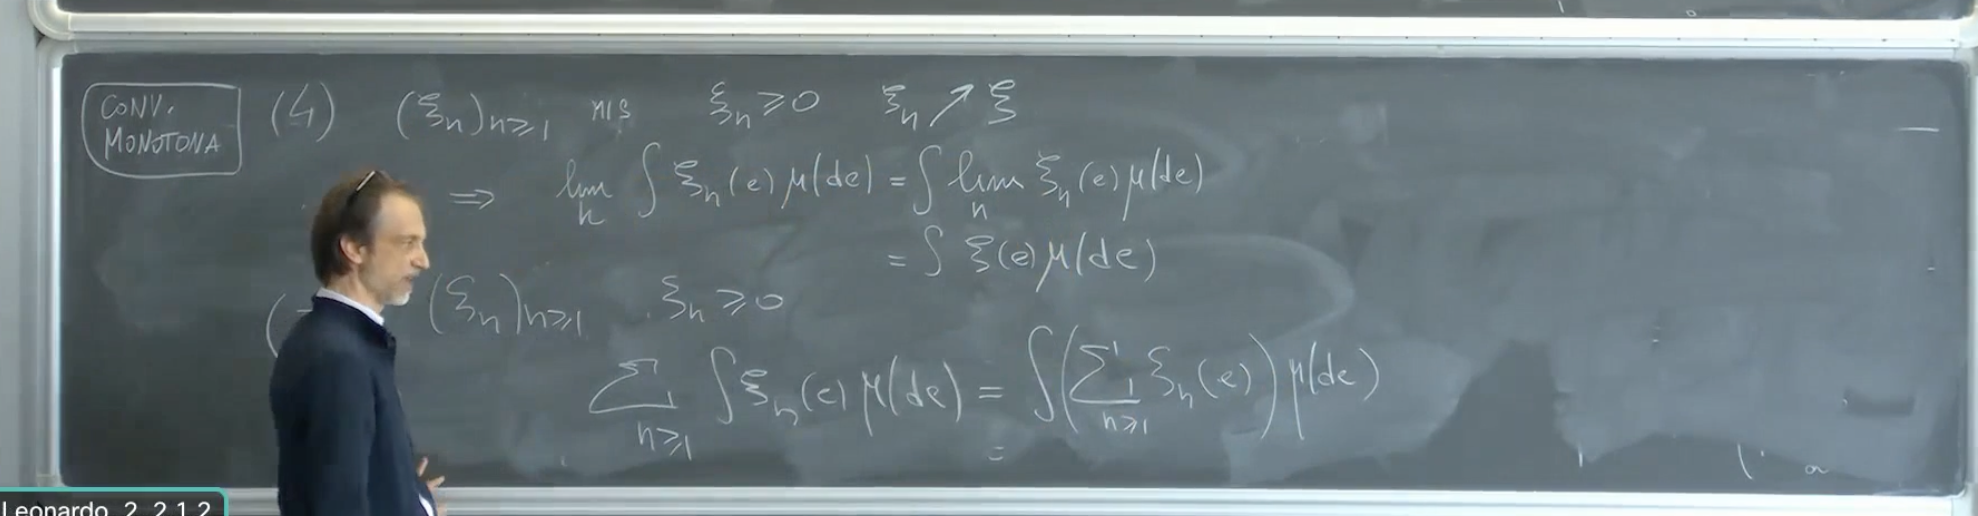 CONV. MONOTONA (4) (ξn)n≥1 mis ξn ≥ 0 ξn ↗ ξ
⇒ lim n ∫ ξn(e) μ(de) = ∫ lim n ξn(e) μ(de)
= ∫ ξ(e) μ(de)
( (ξn)n≥1 ξn ≥ 0
∑ n≥1 ∫ ξn(e) μ(de) = ∫ (∑ n≥1 ξn(e)) μ(de)
=
Leonardo_2_2.1.2